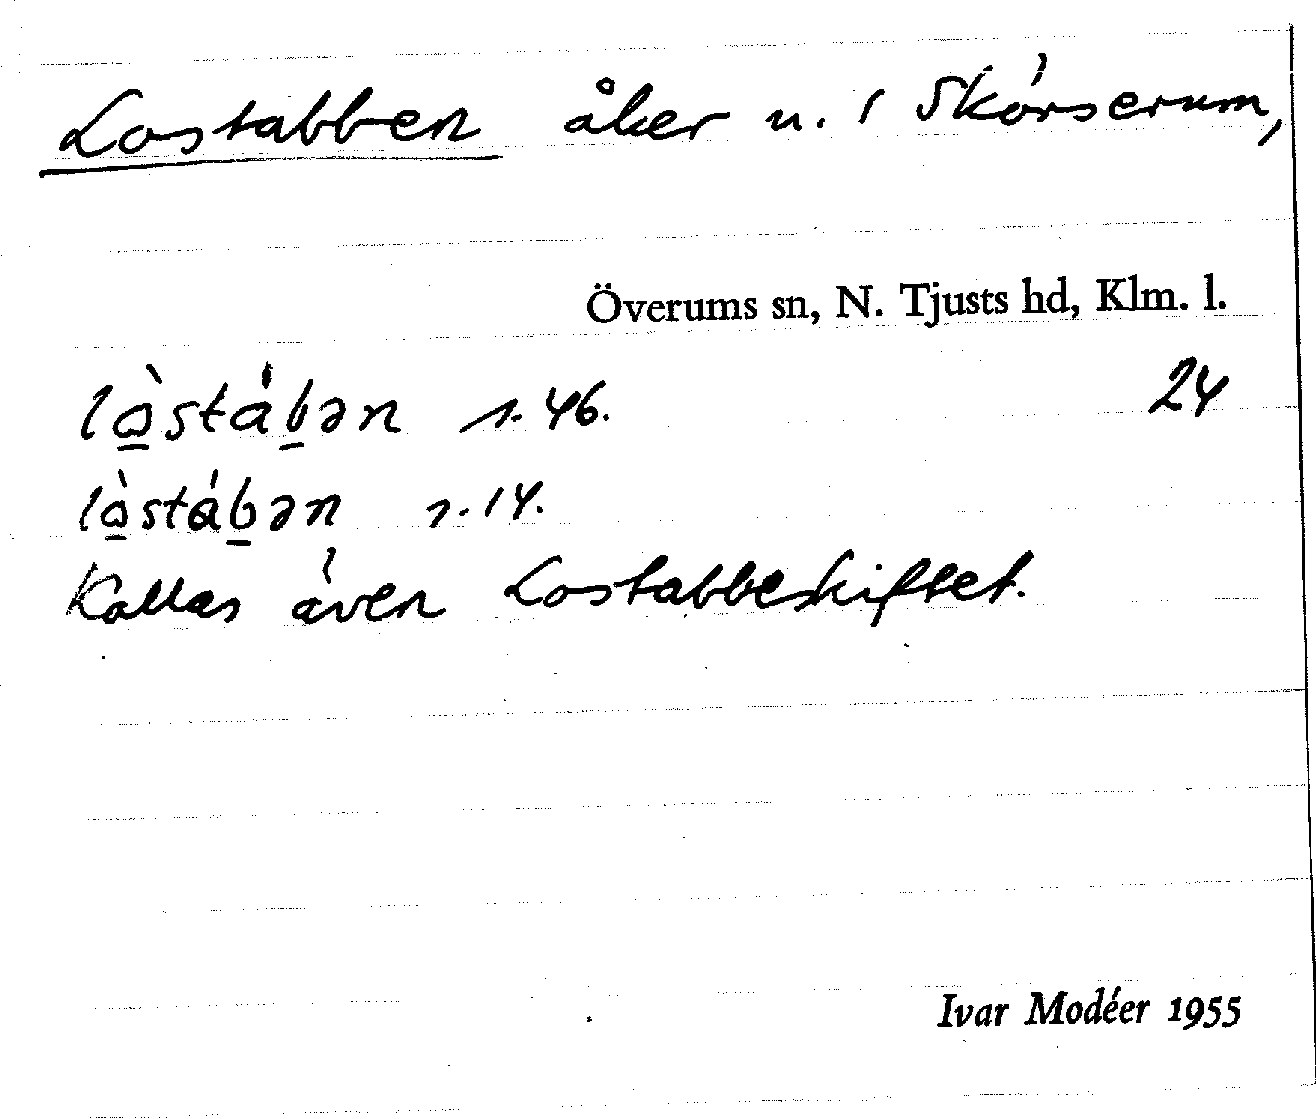 Lostabben åker n. 1 Skörserum,
Överums sn, N. Tjusts hd, Klm. l.
lò̱stáḇən s. 46. 24
lò̱stáḇən s. 14.
Kallas även Lostabbeskiftet.
Ivar Modéer 1955